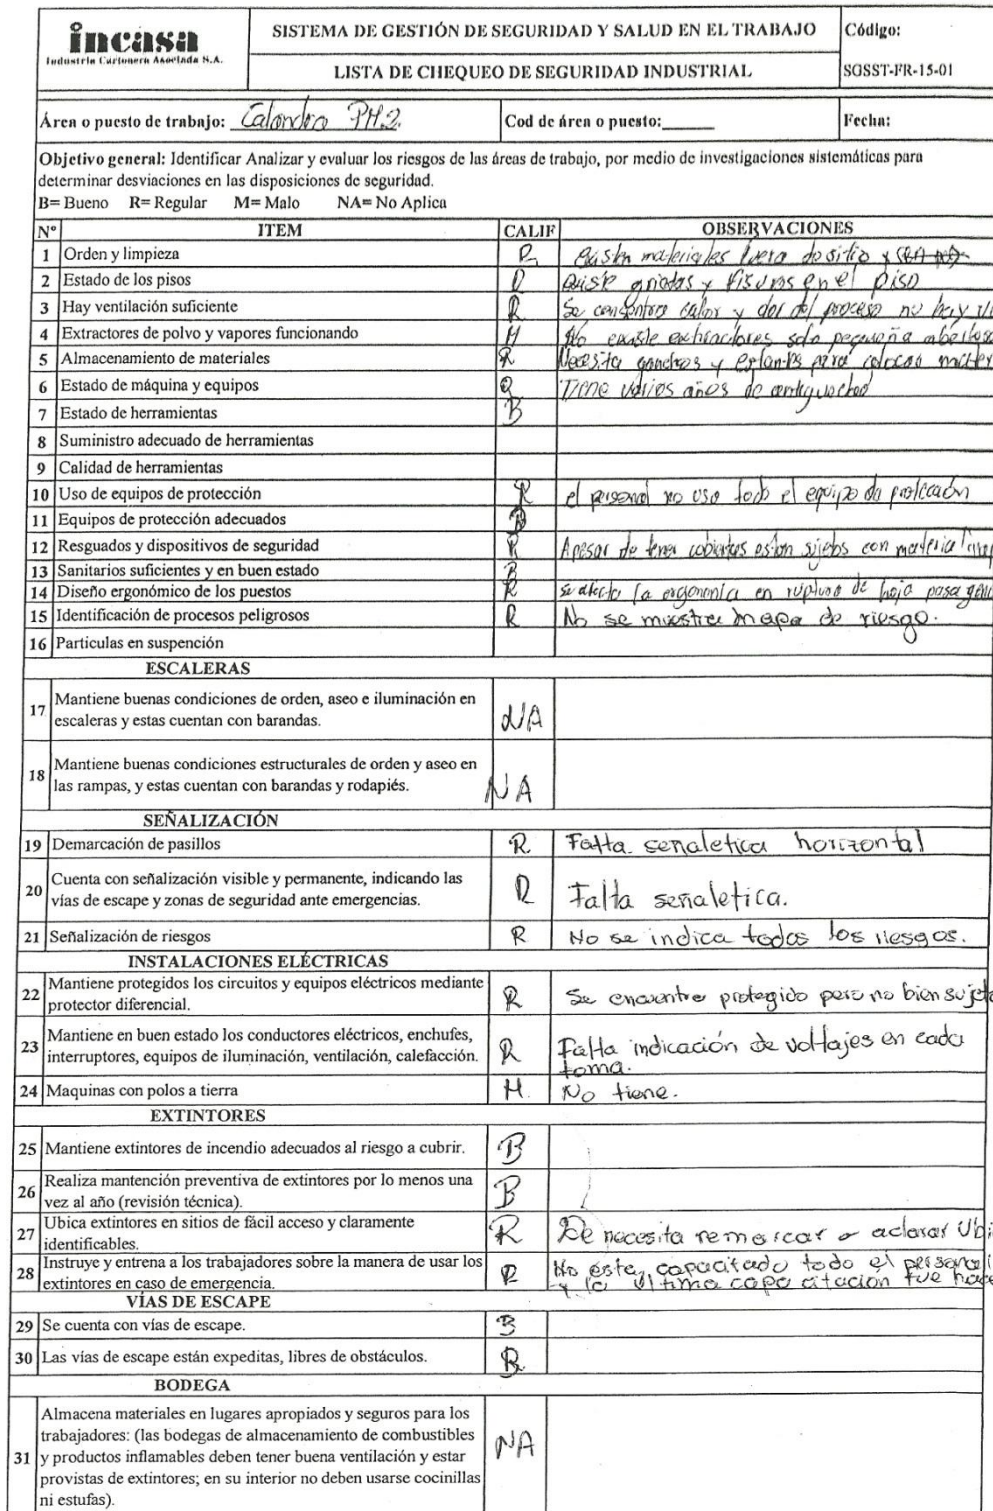 incasa
Industria Cartonera Asociada S.A.
SISTEMA DE GESTIÓN DE SEGURIDAD Y SALUD EN EL TRABAJO
Código:
LISTA DE CHEQUEO DE SEGURIDAD INDUSTRIAL
SGSST-FR-15-01
Área o puesto de trabajo: PM.2.
Cod de área o puesto:
Fecha:
Objetivo general: Identificar Analizar y evaluar los riesgos de las áreas de trabajo, por medio de investigaciones sistemáticas para
determinar desviaciones en las disposiciones de seguridad.
B= Bueno R= Regular M= Malo NA= No Aplica
N° ITEM CALIF OBSERVACIONES
1 Orden y limpieza R materiales fuera de sitio y
2 Estado de los pisos grietas y fisuras en el piso
3 Hay ventilación suficiente R Se calor y del proceso no hay
4 Extractores de polvo y vapores funcionando M No existe extractores solo pequeña
5 Almacenamiento de materiales R Necesita ganchos y estantes para colocar
6 Estado de máquina y equipos Tiene varios años de
7 Estado de herramientas B
8 Suministro adecuado de herramientas
9 Calidad de herramientas
10 Uso de equipos de protección R el personal no usa todo el equipo de protección
11 Equipos de protección adecuados
12 Resguados y dispositivos de seguridad R Apesar de tener cubiertas estan sujetos con
13 Sanitarios suficientes y en buen estado B
14 Diseño ergonómico de los puestos R se afecta la ergonomía en ruptura de hoja pasa
15 Identificación de procesos peligrosos R No se muestra mapa de riesgo.
16 Particulas en suspención
ESCALERAS
17 Mantiene buenas condiciones de orden, aseo e iluminación en
escaleras y estas cuentan con barandas. NA
18 Mantiene buenas condiciones estructurales de orden y aseo en
las rampas, y estas cuentan con barandas y rodapiés. NA
SEÑALIZACIÓN
19 Demarcación de pasillos R Falta señaletica horizontal
20 Cuenta con señalización visible y permanente, indicando las
vías de escape y zonas de seguridad ante emergencias. R Falta señaletica.
21 Señalización de riesgos R No se indica todos los riesgos.
INSTALACIONES ELÉCTRICAS
22 Mantiene protegidos los circuitos y equipos eléctricos mediante
protector diferencial. R Se encuentra protegido pero no bien
23 Mantiene en buen estado los conductores eléctricos, enchufes,
interruptores, equipos de iluminación, ventilación, calefacción. R Falta indicación de voltajes en cada
toma.
24 Maquinas con polos a tierra M. No tiene.
EXTINTORES
25 Mantiene extintores de incendio adecuados al riesgo a cubrir. B
26 Realiza mantención preventiva de extintores por lo menos una
vez al año (revisión técnica). B
27 Ubica extintores en sitios de fácil acceso y claramente
identificables. R necesita remarcar o aclarar
28 Instruye y entrena a los trabajadores sobre la manera de usar los
extintores en caso de emergencia. R No esta capacitado todo el personal
y la ultima capacitacion fue
VÍAS DE ESCAPE
29 Se cuenta con vías de escape. B
30 Las vías de escape están expeditas, libres de obstáculos.
BODEGA
31 Almacena materiales en lugares apropiados y seguros para los
trabajadores: (las bodegas de almacenamiento de combustibles
y productos inflamables deben tener buena ventilación y estar
provistas de extintores; en su interior no deben usarse cocinillas
ni estufas). NA